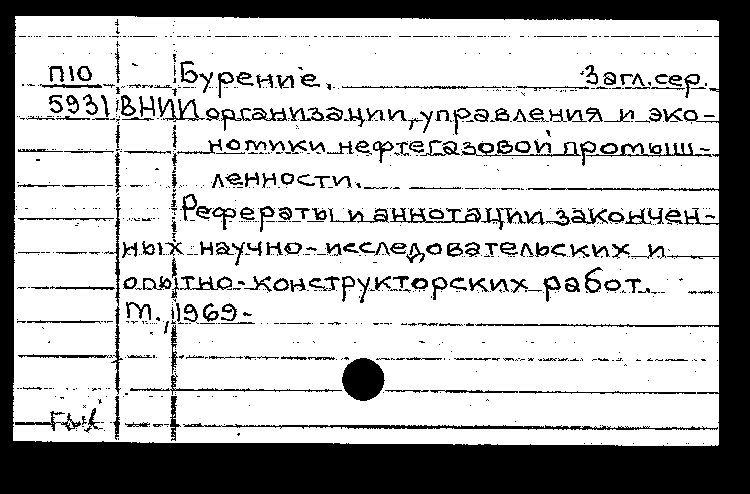 П10 Бурение. Загл.сер.
5931 ВНИИ организации, управления и эко-
номики нефтегазовой промыш-
ленности.
Рефераты и аннотации закончен-
ных научно-исследовательских и
опытно-конструкторских работ.
М., 1969-